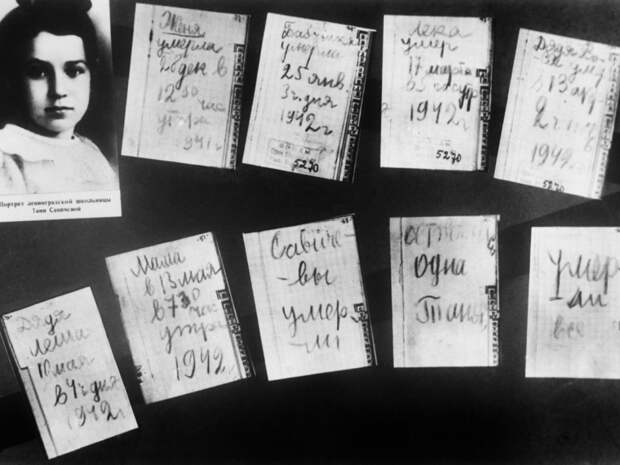 Портрет ленинградской школьницы
Тани Савичевой
Женя
умерла
28 дек в
12 00 час
утра
1941 г
Бабушка
умерла
25 янв.
3 ч дня
1942 г
5270
Лека
умер
17 марта
в 5 час утр
1942 г
5270
Дядя Ва
ся умер
в 13 апр
2 ч ноч
1942 г
5270
Дядя
Леша
10 мая
в 4 ч дня
1942 г
Мама
в 13 мая
в 7 30 час
утра
1942 г
Савиче
-вы
умер-
-ли
осталась
одна
Таня
умер
-ли
все